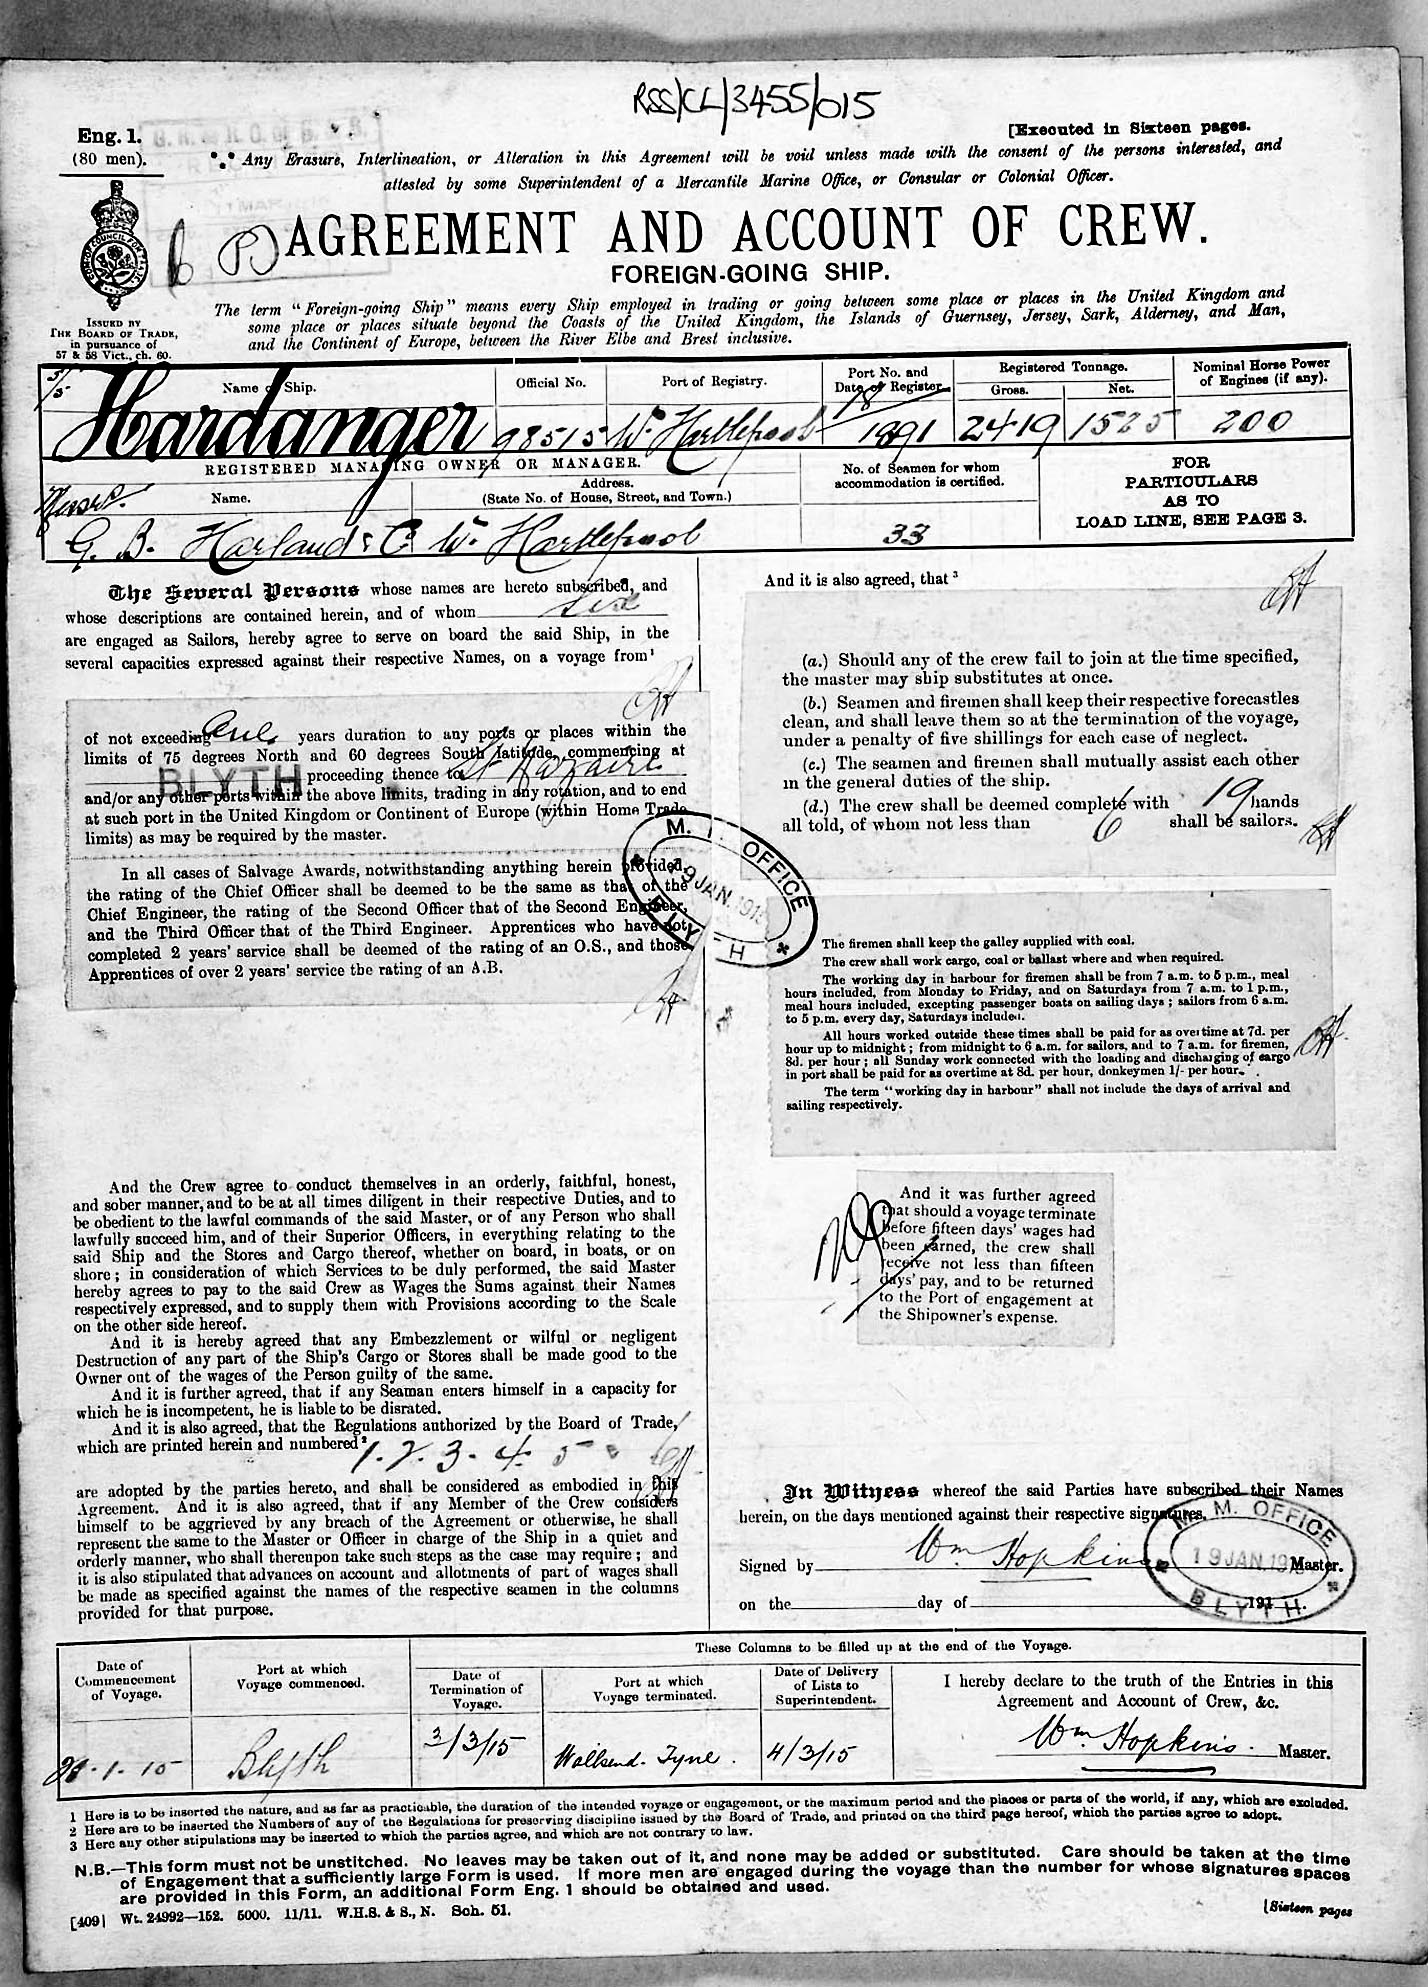 RSS/CL/3455/015
Eng. 1.
(80 men).
[Executed in Sixteen pages.
*.* Any Erasure, Interlineation, or Alteration in this Agreement will be void unless made with the consent of the persons interested, and
attested by some Superintendent of a Mercantile Marine Office, or Consular or Colonial Officer.
AGREEMENT AND ACCOUNT OF CREW.
FOREIGN-GOING SHIP.
ISSUED BY
THE BOARD OF TRADE,
in pursuance of
57 & 58 Vict., ch. 60.
The term "Foreign-going Ship" means every Ship employed in trading or going between some place or places in the United Kingdom and
some place or places situate beyond the Coasts of the United Kingdom, the Islands of Guernsey, Jersey, Sark, Alderney, and Man,
and the Continent of Europe, between the River Elbe and Brest inclusive.
Name of Ship.
Official No.
Port of Registry.
Port No. and
Date of Register
Registered Tonnage.
Gross.
Net.
Nominal Horse Power
of Engines (if any).
Hardanger
98515
Wt Hartlepool
18
1891
2419
1525
200
REGISTERED MANAGING OWNER OR MANAGER.
Name.
Address.
(State No. of House, Street, and Town.)
No. of Seamen for whom
accommodation is certified.
FOR
PARTICULARS
AS TO
LOAD LINE, SEE PAGE 3.
Messrs.
G. B. Harland & Co Wt Hartlepool
33
The Several Persons whose names are hereto subscribed, and
whose descriptions are contained herein, and of whom six
are engaged as Sailors, hereby agree to serve on board the said Ship, in the
several capacities expressed against their respective Names, on a voyage from¹
of not exceeding one years duration to any ports or places within the
limits of 75 degrees North and 60 degrees South latitude, commencing at
BLYTH proceeding thence to St Nazaire
and/or any other ports within the above limits, trading in any rotation, and to end
at such port in the United Kingdom or Continent of Europe (within Home Trade
limits) as may be required by the master.
In all cases of Salvage Awards, notwithstanding anything herein provided,
the rating of the Chief Officer shall be deemed to be the same as that of the
Chief Engineer, the rating of the Second Officer that of the Second Engineer,
and the Third Officer that of the Third Engineer. Apprentices who have not
completed 2 years' service shall be deemed of the rating of an O.S., and those
Apprentices of over 2 years' service the rating of an A.B.
And the Crew agree to conduct themselves in an orderly, faithful, honest,
and sober manner, and to be at all times diligent in their respective Duties, and to
be obedient to the lawful commands of the said Master, or of any Person who shall
lawfully succeed him, and of their Superior Officers, in everything relating to the
said Ship and the Stores and Cargo thereof, whether on board, in boats, or on
shore; in consideration of which Services to be duly performed, the said Master
hereby agrees to pay to the said Crew as Wages the Sums against their Names
respectively expressed, and to supply them with Provisions according to the Scale
on the other side hereof.
And it is hereby agreed that any Embezzlement or wilful or negligent
Destruction of any part of the Ship's Cargo or Stores shall be made good to the
Owner out of the wages of the Person guilty of the same.
And it is further agreed, that if any Seaman enters himself in a capacity for
which he is incompetent, he is liable to be disrated.
And it is also agreed, that the Regulations authorized by the Board of Trade,
which are printed herein and numbered² 1. 2. 3. 4. 5
are adopted by the parties hereto, and shall be considered as embodied in this
Agreement. And it is also agreed, that if any Member of the Crew considers
himself to be aggrieved by any breach of the Agreement or otherwise, he shall
represent the same to the Master or Officer in charge of the Ship in a quiet and
orderly manner, who shall thereupon take such steps as the case may require; and
it is also stipulated that advances on account and allotments of part of wages shall
be made as specified against the names of the respective seamen in the columns
provided for that purpose.
And it is also agreed, that ³
(a.) Should any of the crew fail to join at the time specified,
the master may ship substitutes at once.
(b.) Seamen and firemen shall keep their respective forecastles
clean, and shall leave them so at the termination of the voyage,
under a penalty of five shillings for each case of neglect.
(c.) The seamen and firemen shall mutually assist each other
in the general duties of the ship.
(d.) The crew shall be deemed complete with 19 hands
all told, of whom not less than 6 shall be sailors.
M. M. OFFICE
19 JAN. 1915
BLYTH
The firemen shall keep the galley supplied with coal.
The crew shall work cargo, coal or ballast where and when required.
The working day in harbour for firemen shall be from 7 a.m. to 5 p.m., meal
hours included, from Monday to Friday, and on Saturdays from 7 a.m. to 1 p.m.,
meal hours included, excepting passenger boats on sailing days; sailors from 6 a.m.
to 5 p.m. every day, Saturdays included.
All hours worked outside these times shall be paid for as overtime at 7d. per
hour up to midnight; from midnight to 6 a.m. for sailors, and to 7 a.m. for firemen,
8d. per hour; all Sunday work connected with the loading and discharging of cargo
in port shall be paid for as overtime at 8d. per hour, donkeymen 1/- per hour.
The term "working day in harbour" shall not include the days of arrival and
sailing respectively.
And it was further agreed
that should a voyage terminate
before fifteen days' wages had
been earned, the crew shall
receive not less than fifteen
days' pay, and to be returned
to the Port of engagement at
the Shipowner's expense.
In Witness whereof the said Parties have subscribed their Names
herein, on the days mentioned against their respective signatures.
Signed by Wm Hopkins Master.
on the day of 191 .
M. M. OFFICE
19 JAN. 191
BLYTH
These Columns to be filled up at the end of the Voyage.
Date of
Commencement
of Voyage.
Port at which
Voyage commenced.
Date of
Termination of
Voyage.
Port at which
Voyage terminated.
Date of Delivery
of Lists to
Superintendent.
I hereby declare to the truth of the Entries in this
Agreement and Account of Crew, &c.
-1-15
Blyth
3/3/15
Wallsend. Tyne.
4/3/15
Wm Hopkins. Master.
1 Here is to be inserted the nature, and as far as practicable, the duration of the intended voyage or engagement, or the maximum period and the places or parts of the world, if any, which are excluded.
2 Here are to be inserted the Numbers of any of the Regulations for preserving discipline issued by the Board of Trade, and printed on the third page hereof, which the parties agree to adopt.
3 Here any other stipulations may be inserted to which the parties agree, and which are not contrary to law.
N.B.—This form must not be unstitched. No leaves may be taken out of it, and none may be added or substituted. Care should be taken at the time
of Engagement that a sufficiently large Form is used. If more men are engaged during the voyage than the number for whose signatures spaces
are provided in this Form, an additional Form Eng. 1 should be obtained and used.
[409] Wt. 24992—152. 5000. 11/11. W.H.S. & S., N. Sch. 51.
[Sixteen pages